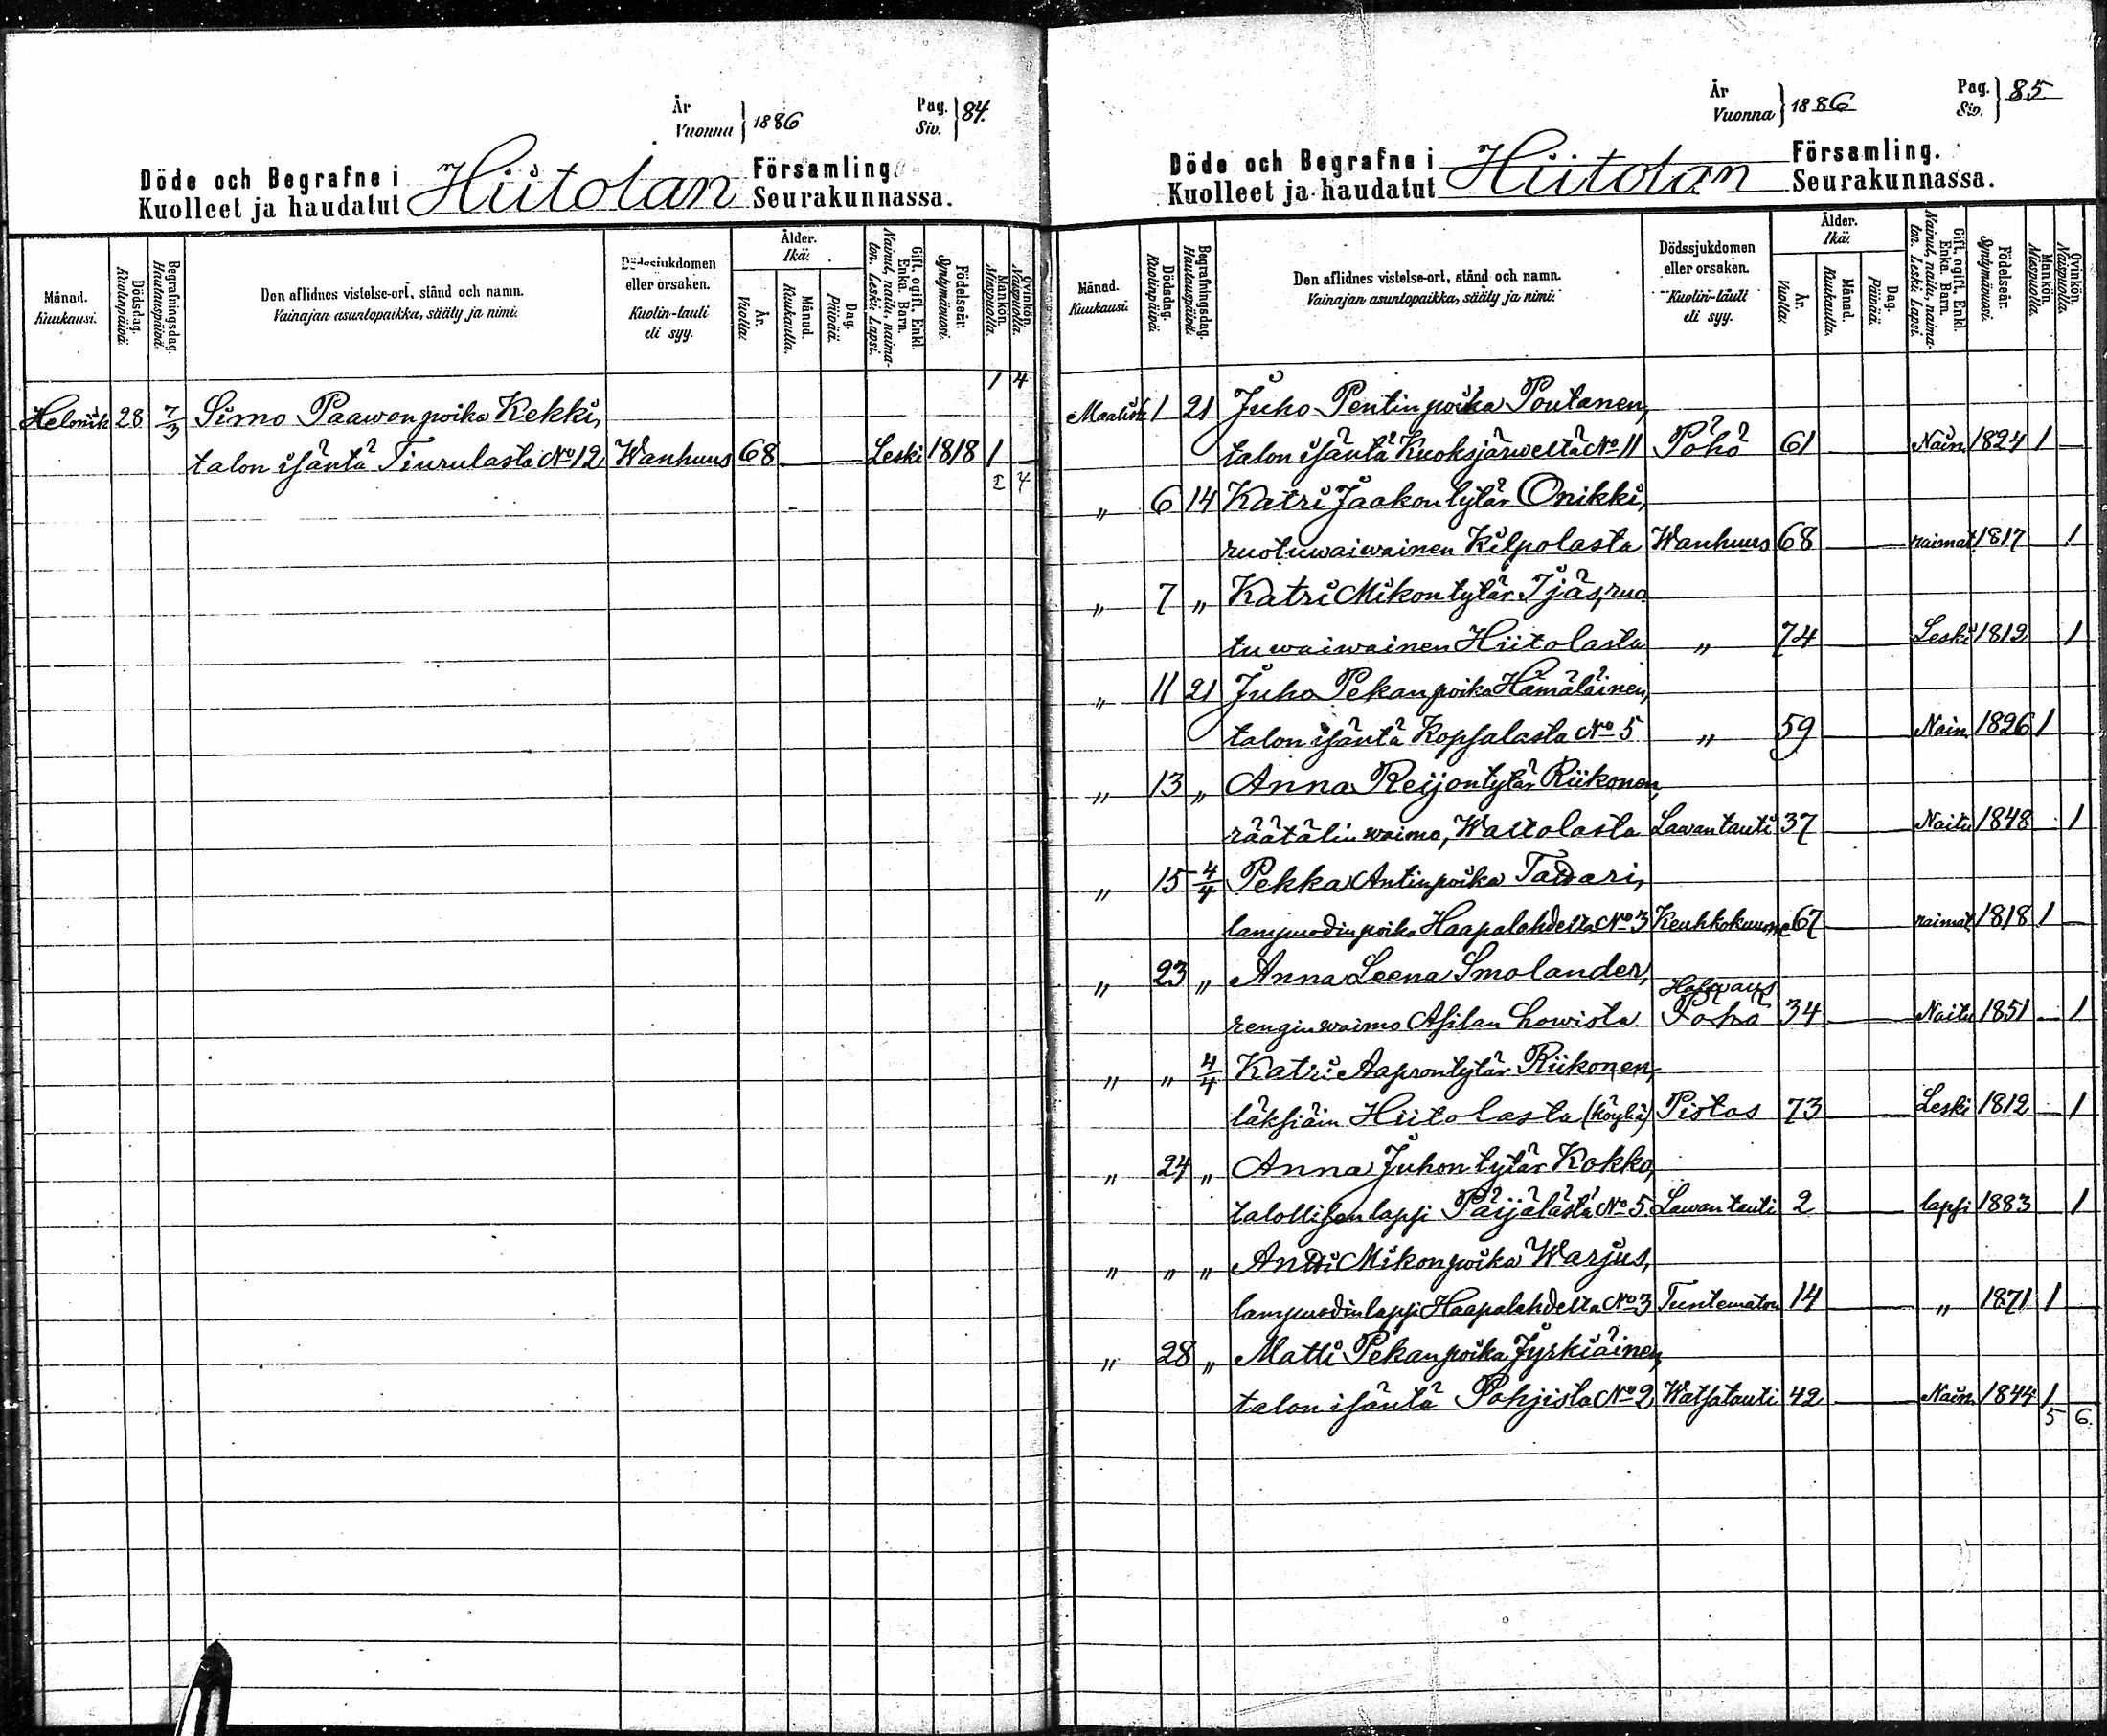 År
Vuonna } 1886
Pag.
Siv. } 84.
Döde och Begrafne i Hiitolan Församling.
Kuolleet ja haudatut Seurakunnassa.
Månad.
Kuukausi.
Dödsdag.
Kuolinpäivä.
Begrafningsdag.
Hautauspäivä.
Den aflidnes vistelse-ort, stånd och namn.
Vainajan asuntopaikka, sääty ja nimi.
Dödssjukdomen
eller orsaken.
Kuolin-tauti
eli syy.
Ålder.
Ikä.
År.
Vuotta.
Månad.
Kuukautta.
Dag.
Päivää.
Gift, ogift, Enkl.
Enka. Barn.
Nainut, naitu, naima-
ton. Leski. Lapsi.
Födelseår.
Syntymävuosi.
Mankön.
Miespuolia.
Qvinkön.
Naispuolia.
1 4
Helmik 28 7/3 Simo Paawonpoika Kekki,
talon isäntä Tiurulasta No 12 Wanhuus 68 Leski 1818 1 —
2 4
År
Vuonna } 1886
Pag.
Siv. } 85
Döde och Begrafne i Hiitolan Församling.
Kuolleet ja haudatut Seurakunnassa.
Månad.
Kuukausi.
Dödsdag.
Kuolinpäivä.
Begrafningsdag.
Hautauspäivä.
Den aflidnes vistelse-ort, stånd och namn.
Vainajan asuntopaikka, sääty ja nimi.
Dödssjukdomen
eller orsaken.
Kuolin-tauti
eli syy.
Ålder.
Ikä.
År.
Vuotta.
Månad.
Kuukautta.
Dag.
Päivää.
Gift, ogift, Enkl.
Enka. Barn.
Nainut, naitu, naima-
ton. Leski. Lapsi.
Födelseår.
Syntymävuosi.
Mankön.
Miespuolia.
Qvinkön.
Naispuolia.
Maalisk 1 21 Juho Pentinpoika Poutanen,
talon isäntä Kuoksjärweltä No 11 Pöhö 61 Nain. 1824 1 —
" 6 14 Katri Jaakontytär Onikki,
ruotuwaiwainen Kilpolasta Wanhuus 68 naimat. 1817 1
" 7 " Katri Mikontytär Ijäs, ruo
tuwaiwainen Hiitolasta " 74 Leski 1812 1
" 11 21 Juho Pekanpoika Hämäläinen,
talon isäntä Kopsalasta No 5 " 59 Nain. 1826 1
" 13 " Anna Reijontytär Riikonen,
räätälin waimo, Waltolasta Lawantauti 37 Naitu 1848 1
" 15 4/4 Pekka Antinpoika Tattari,
lampuodinpoika Haapalahdelta No 3 Keuhkokuume 67 naimat. 1818 1 —
" 23 " Anna Leena Smolander,
Halwaus
renginwaimo Asilan howista Pöhö 34 Naitu 1851 — 1
" " 4/4 Katri Aaprontytär Riikonen,
läksiäin Hiitolasta (köyhä) Pistos 73 Leski 1812 — 1
" 24 " Anna Juhontytär Kokko,
talollisen lapsi Päijälästä No 5. Lawantauti 2 lapsi 1883 1
" " " Antti Mikonpoika Warjus,
lampuodin lapsi Haapalahdelta No 3 Tuntematon 14 " 1871 1
" 28 " Matti Pekanpoika Jyrkiäinen,
talon isäntä Pohjista No 2 Watsatauti 42 Nain. 1844 1
5 6.